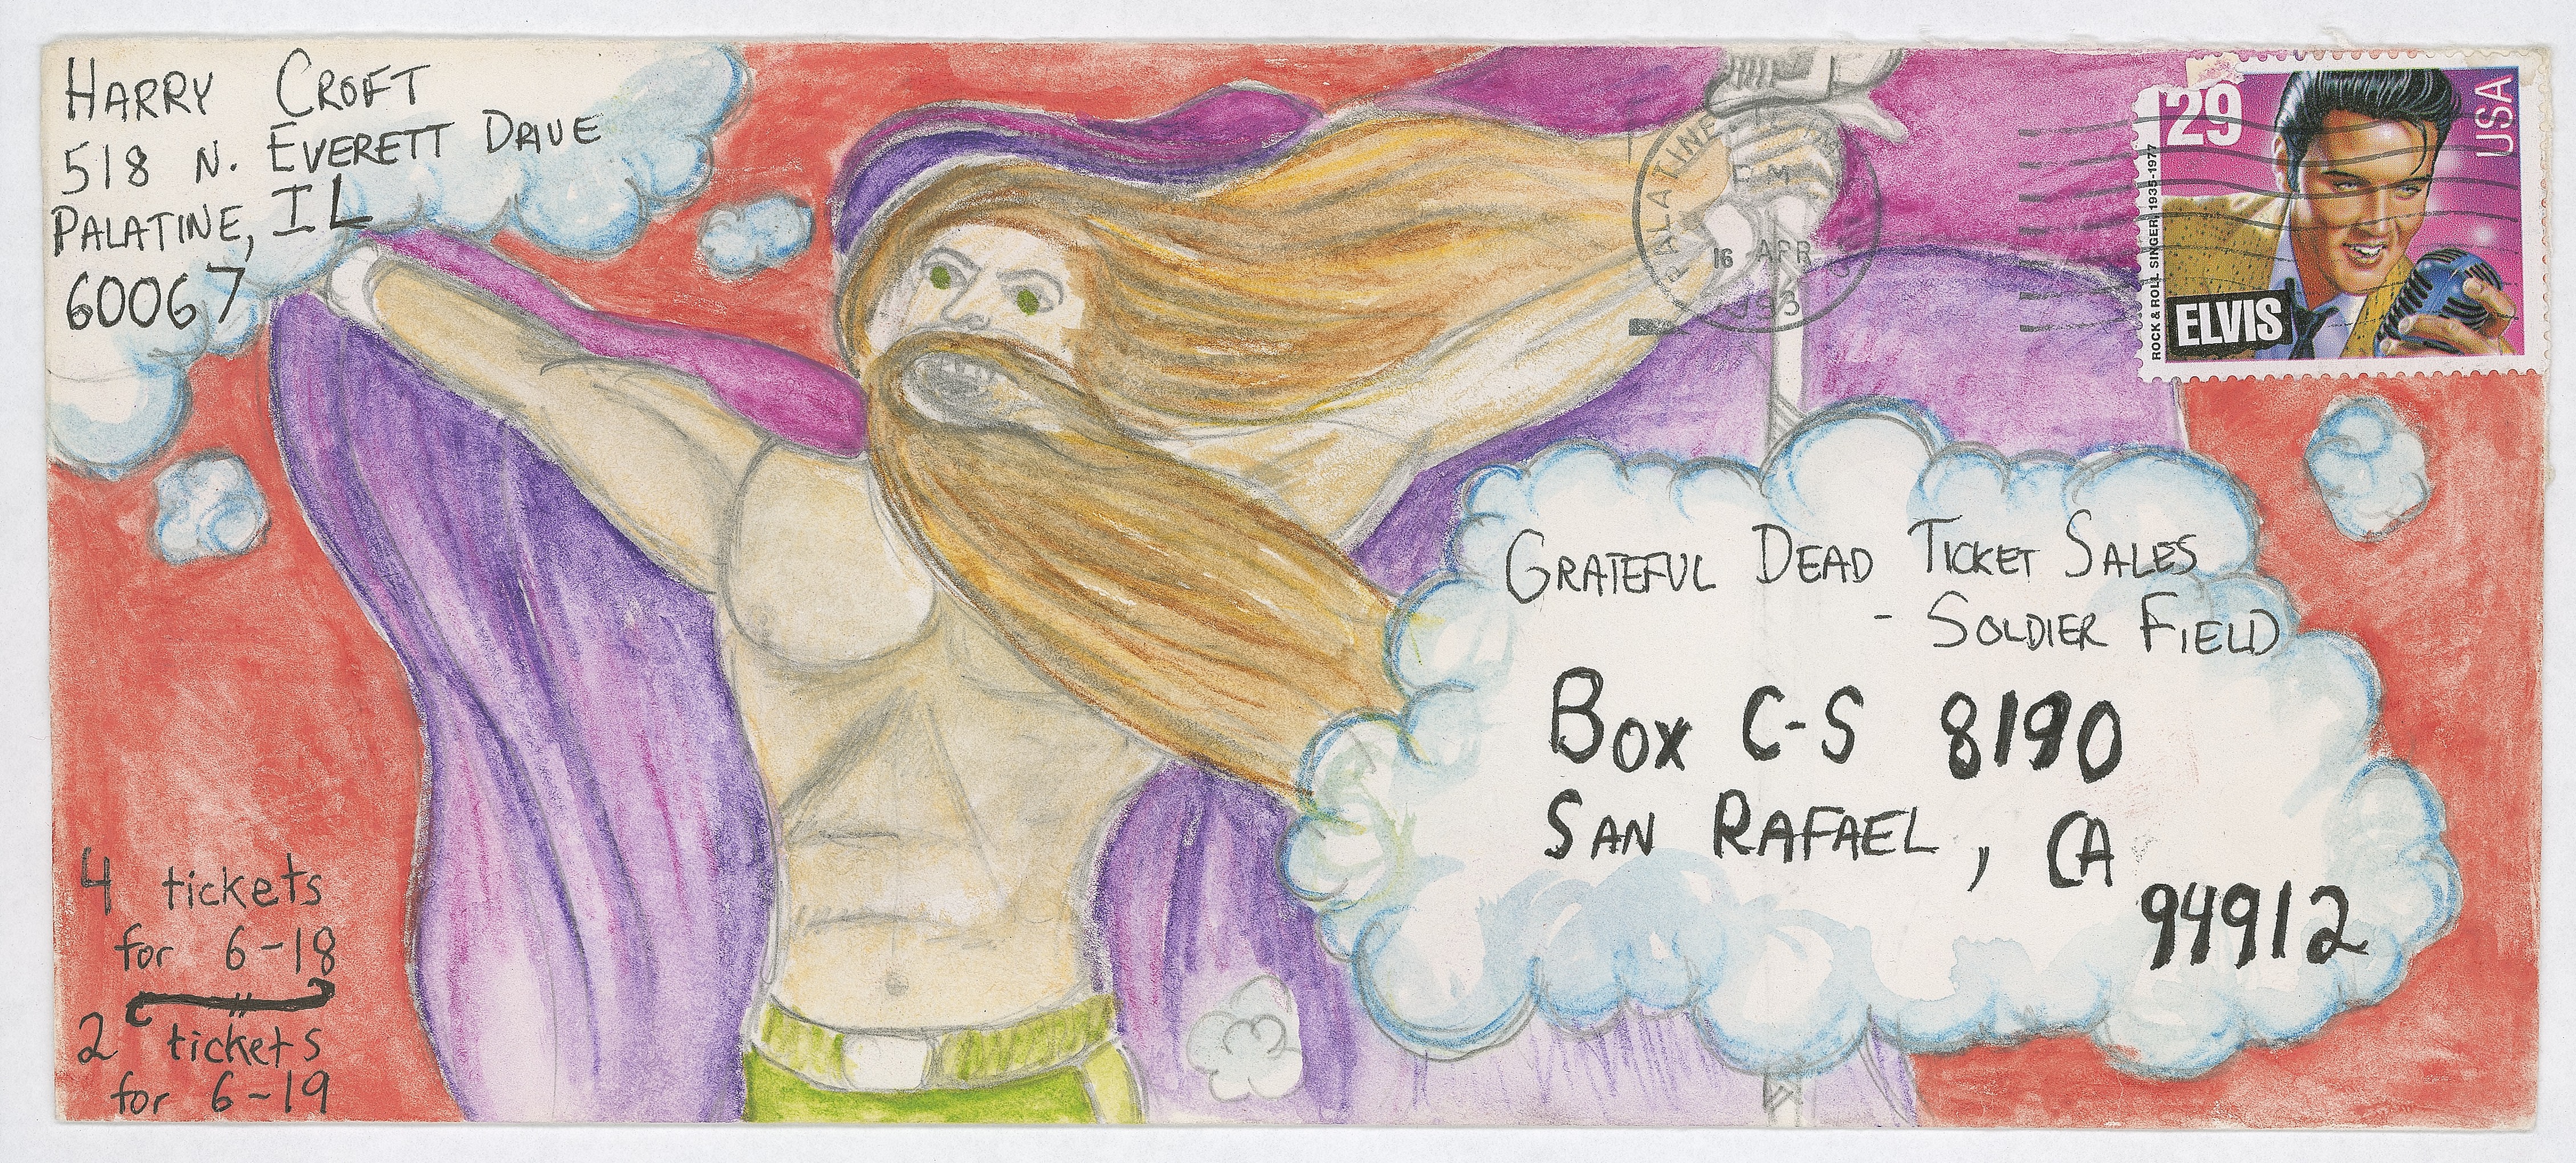 HARRY CROFT
518 N. EVERETT DRIVE
PALATINE, IL
60067
PALATINE
16 APR
1993
29
USA
ROCK & ROLL SINGER, 1935-1977
ELVIS
GRATEFUL DEAD TICKET SALES
- SOLDIER FIELD
BOX C-S 8190
SAN RAFAEL, CA
94912
4 tickets
for 6-18
2 tickets
for 6-19